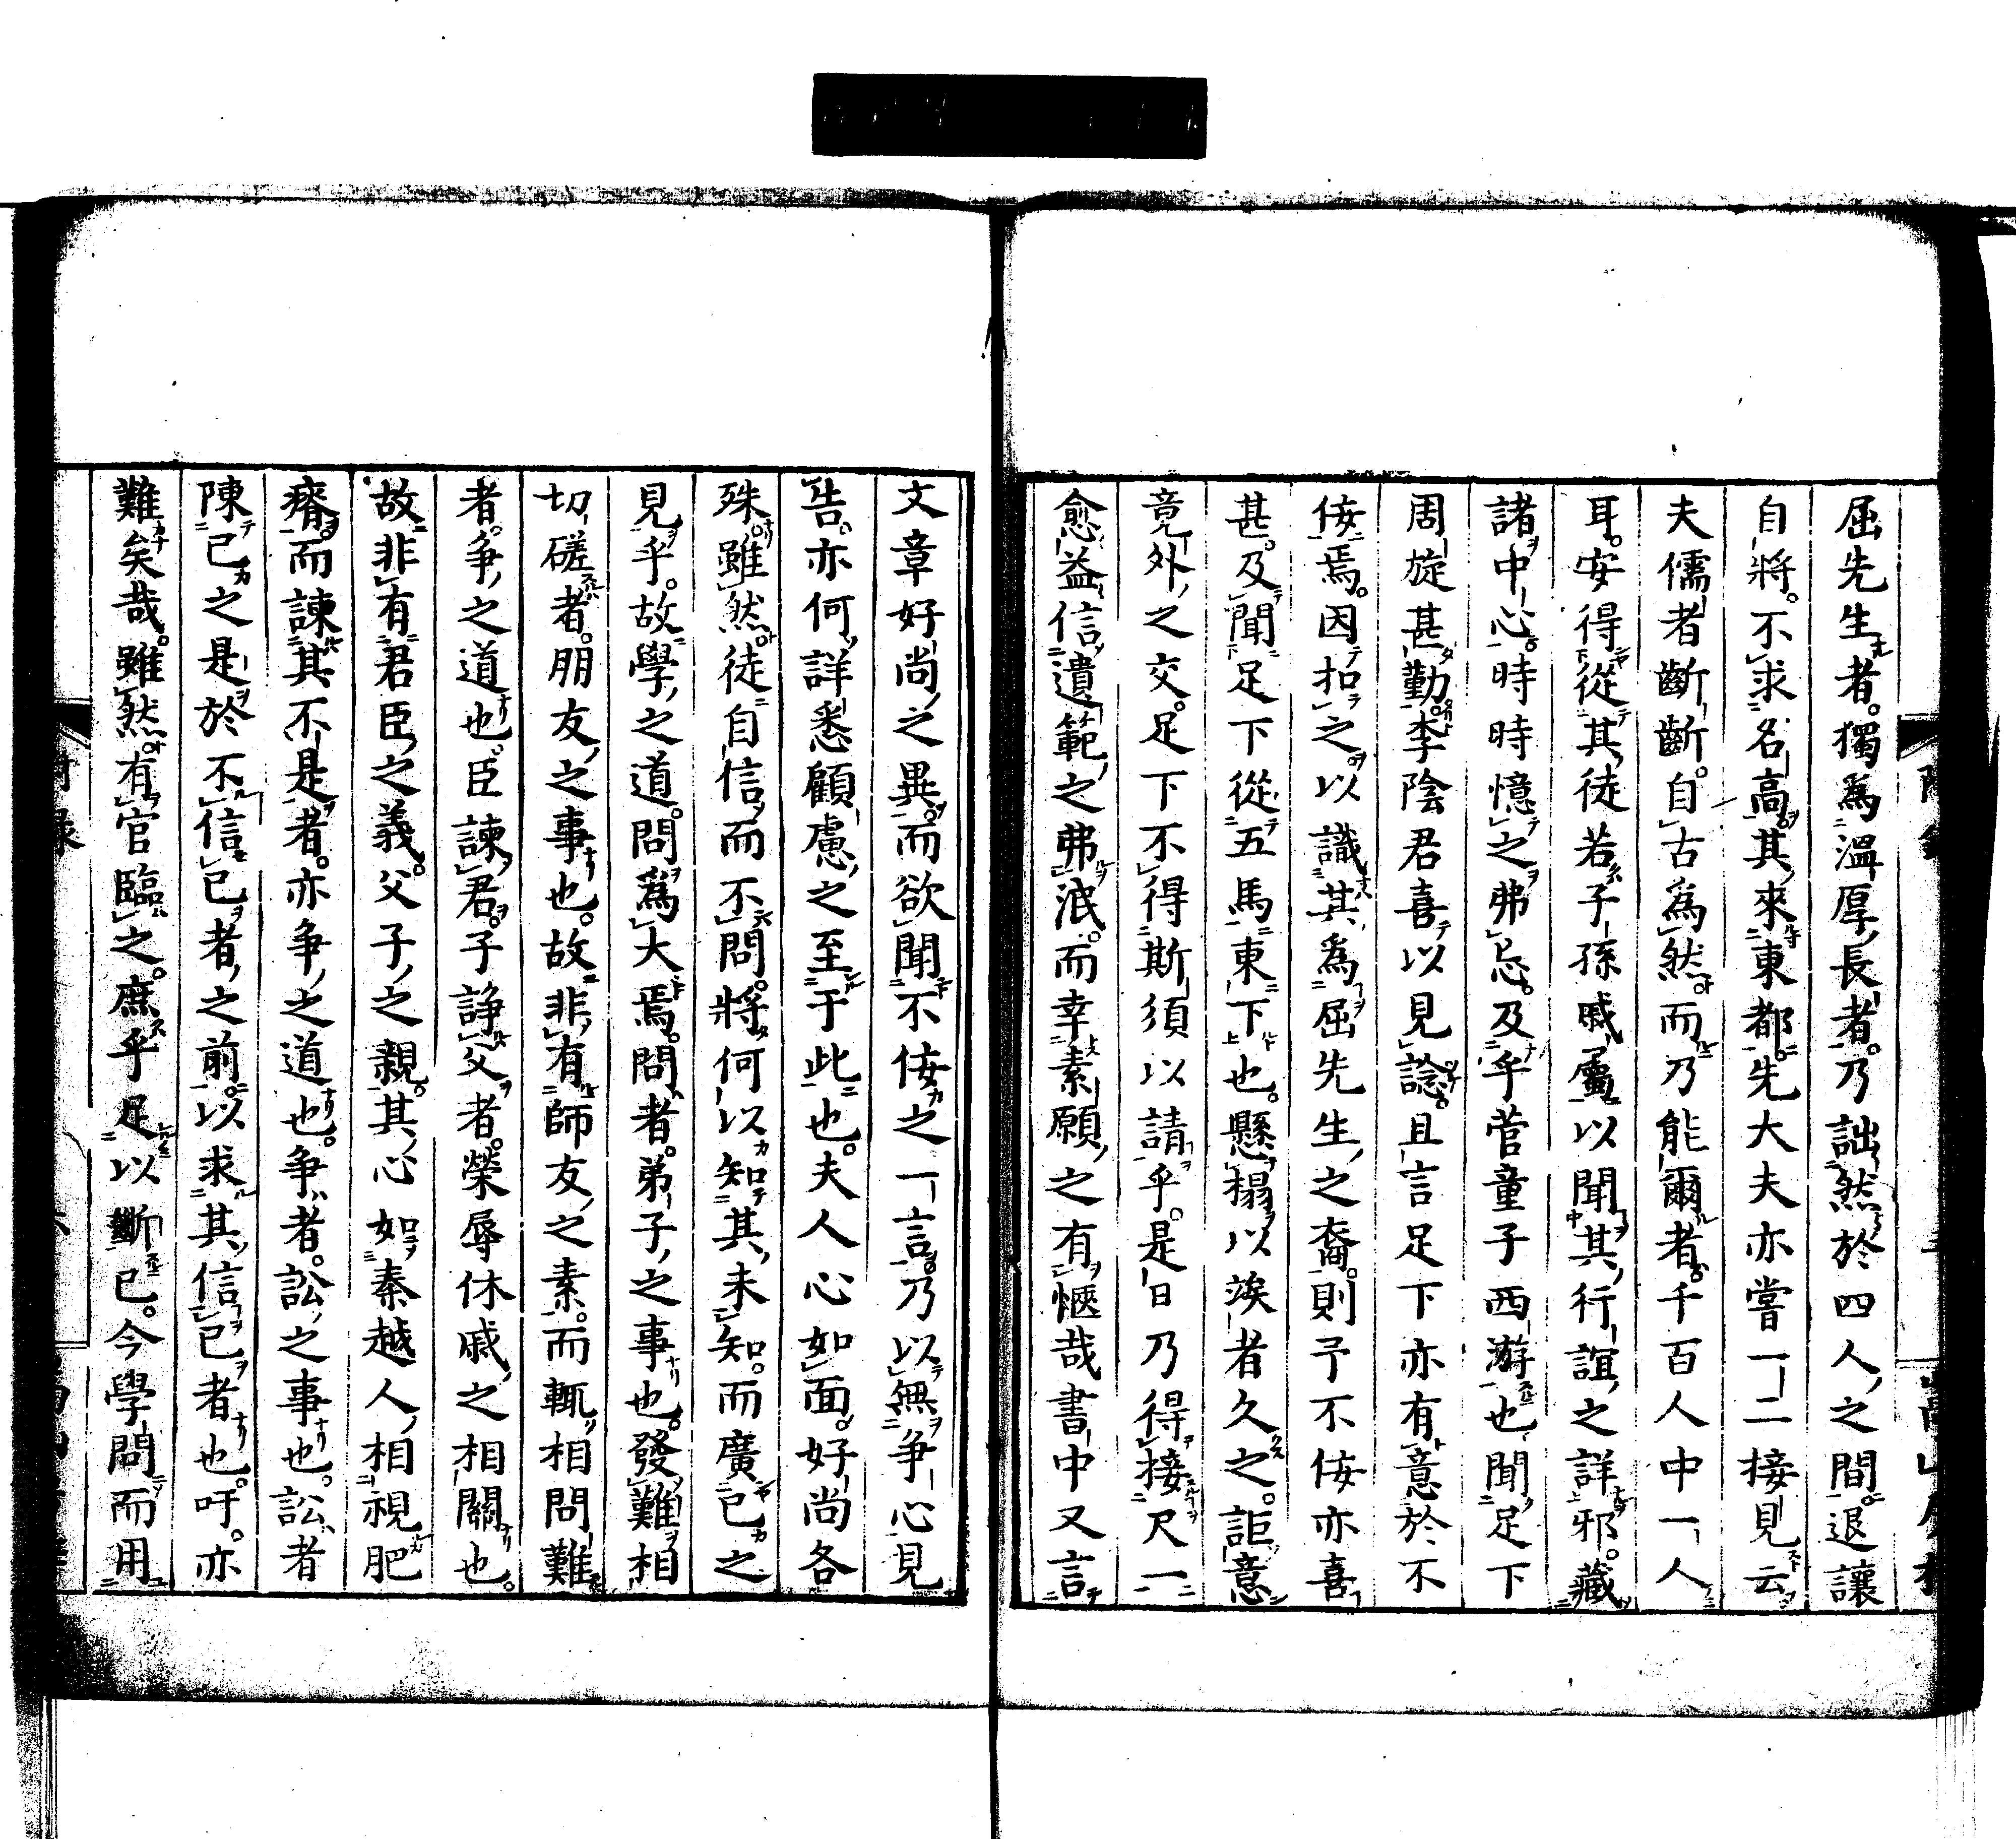 屈先生者。獨爲溫厚長者。乃詘然於四人之間。退讓
自將。不求名高。其來東都。先大夫亦嘗一二接見云
夫儒者齗齗。自古爲然。而乃能爾者。千百人中一人
耳。安得從其徒若子孫戚屬以聞其行誼之詳邪。藏
諸中心。時時憶之弗忘。及乎菅童子西游也。聞足下
周旋甚勤。李陰君喜以見諗。且言足下亦有意於不
佞焉。因扣之。以識其爲屈先生之裔。則予不佞亦喜
甚。及聞足下從五馬東下也。懸榻以竢者久之。詎意
竟外之交。足下不得斯須以請乎。是日乃得接尺一
愈益信遺範之弗泯。而幸素願之有愜哉書中又言
文章好尚之異。而欲聞不佞之一言。乃以無爭心見
告。亦何詳悉顧慮之至于此也。夫人心如面。好尚各
殊。雖然徒自信而不問。將何以知其未知。而廣已之
見乎。故學之道。問爲大焉。問者。弟子之事也。發難相
切磋者。朋友之事也。故非有師友之素。而輒相問難
者。爭之道也。臣諫君。子諍父者。榮辱休戚之相關也。
故非有君臣之義。父子之親。其心如秦越人相視肥
瘠。而諫其不是者。亦爭之道也。爭者。訟之事也。訟者
陳已之是於不信已者之前。以求其信已者也。吁。亦
難矣哉。雖然有官臨之。庶乎足以斷已。今學問而用